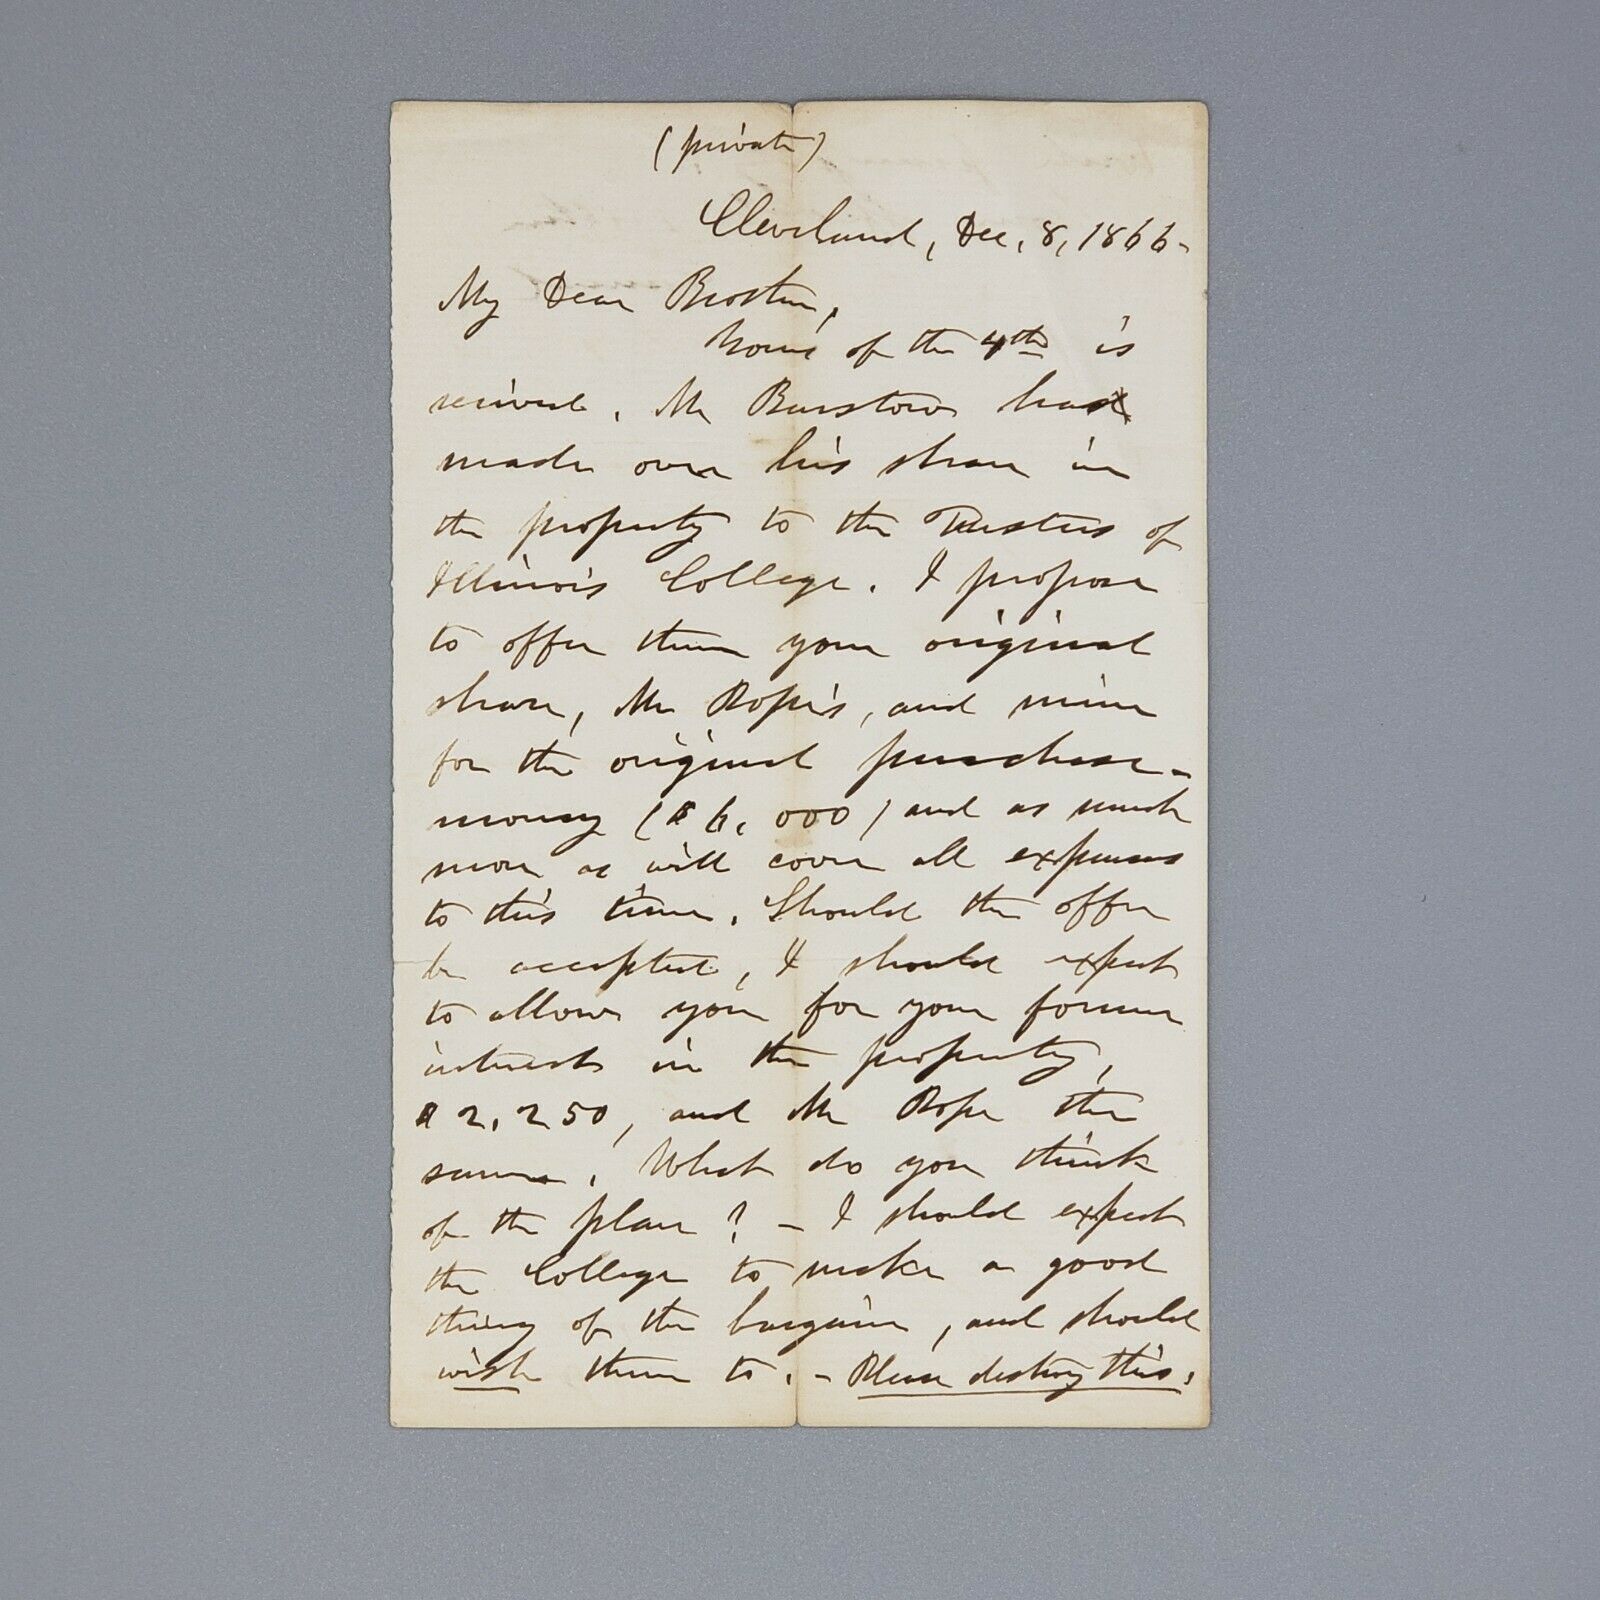 (private)
Cleveland, Dec. 8, 1866.
My Dear Brother,
Yours of the 4th is
received. Mr Barstow has
made over his share in
the property to the Trustees of
Illinois College. I propose
to offer them your original
share, Mr Rope's, and mine
for the original purchase-
money ($6,000) and as much
more as will cover all expenses
to this time. Should the offer
be accepted, I should expect
to allow you for your former
interest in the property,
$2,250, and Mr Rope the
same. What do you think
of the plan? - I should expect
the College to make a good
thing of the bargain, and should
wish them to. - Please destroy this.